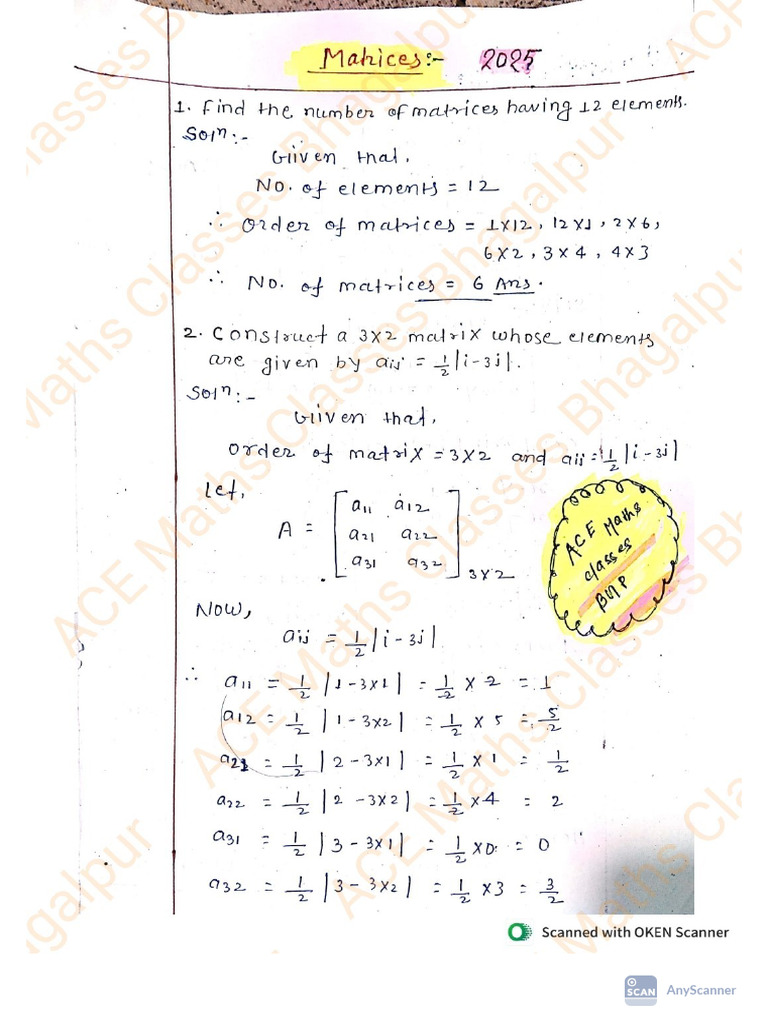 Matrices:- 2025
1. Find the number of matrices having 12 elements.
Solⁿ:-
Giiven that,
No. of elements = 12
∴ Order of matrices = 1×12, 12×1, 2×6,
6×2, 3×4, 4×3
∴ No. of matrices = 6 Ans.
2. Construct a 3×2 matrix whose elements
are given by aij = 1/2 |i-3j|.
Solⁿ:-
Giiven that,
Order of matrix = 3×2 and aij = 1/2 |i-3j|
Let,
A = [a11 a12
a21 a22
a31 a32] 3×2
ACE Maths
classes
BGP
Now,
aij = 1/2 |i-3j|
∴ a11 = 1/2 |1-3×1| = 1/2 × 2 = 1
a12 = 1/2 |1-3×2| = 1/2 × 5 = 5/2
a21 = 1/2 |2-3×1| = 1/2 × 1 = 1/2
a22 = 1/2 |2-3×2| = 1/2 × 4 = 2
a31 = 1/2 |3-3×1| = 1/2 × 0 = 0
a32 = 1/2 |3-3×2| = 1/2 × 3 = 3/2
ACE Maths Classes Bhagalpur
Scanned with OKEN Scanner
SCAN AnyScanner